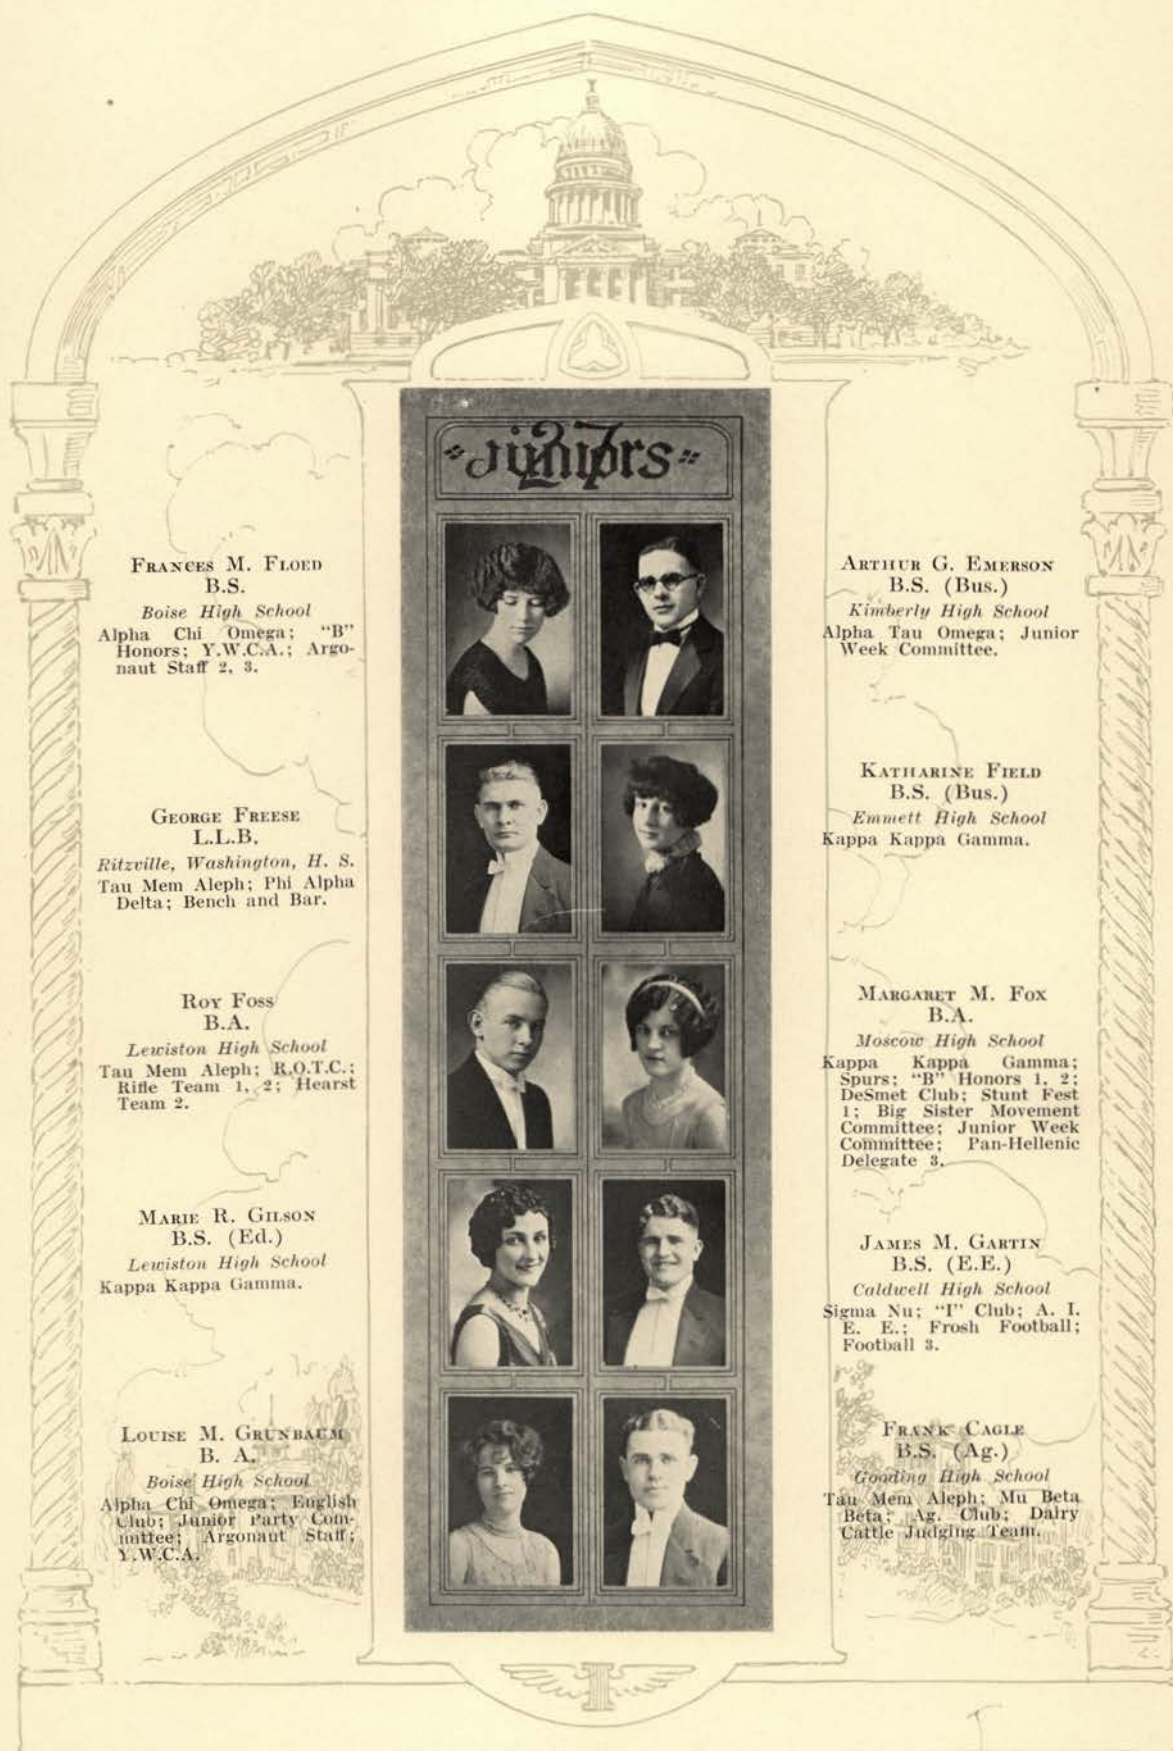 "Juniors"
27
FRANCES M. FLOED
B.S.
Boise High School
Alpha Chi Omega; "B"
Honors; Y.W.C.A.; Argo-
naut Staff 2, 3.
GEORGE FREESE
L.L.B.
Ritzville, Washington, H. S.
Tau Mem Aleph; Phi Alpha
Delta; Bench and Bar.
ROY FOSS
B.A.
Lewiston High School
Tau Mem Aleph; R.O.T.C.;
Rifle Team 1, 2; Hearst
Team 2.
MARIE R. GILSON
B.S. (Ed.)
Lewiston High School
Kappa Kappa Gamma.
LOUISE M. GRUNBAUM
B. A.
Boise High School
Alpha Chi Omega; English
Club; Junior Party Com-
mittee; Argonaut Staff;
Y.W.C.A.
ARTHUR G. EMERSON
B.S. (Bus.)
Kimberly High School
Alpha Tau Omega; Junior
Week Committee.
KATHARINE FIELD
B.S. (Bus.)
Emmett High School
Kappa Kappa Gamma.
MARGARET M. FOX
B.A.
Moscow High School
Kappa Kappa Gamma;
Spurs; "B" Honors 1, 2;
DeSmet Club; Stunt Fest
1; Big Sister Movement
Committee; Junior Week
Committee; Pan-Hellenic
Delegate 3.
JAMES M. GARTIN
B.S. (E.E.)
Caldwell High School
Sigma Nu; "I" Club; A. I.
E. E.; Frosh Football;
Football 3.
FRANK CAGLE
B.S. (Ag.)
Gooding High School
Tau Mem Aleph; Mu Beta
Beta; Ag. Club; Dairy
Cattle Judging Team.